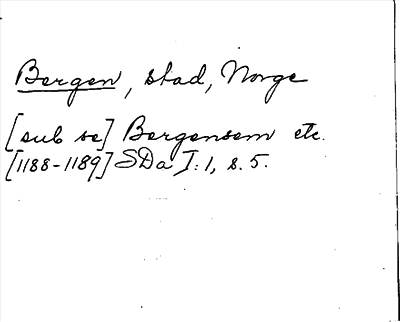 Bergen, stad, Norge
[sub se] Bergensem etc.
[1188-1189] SDa I:1, s. 5.